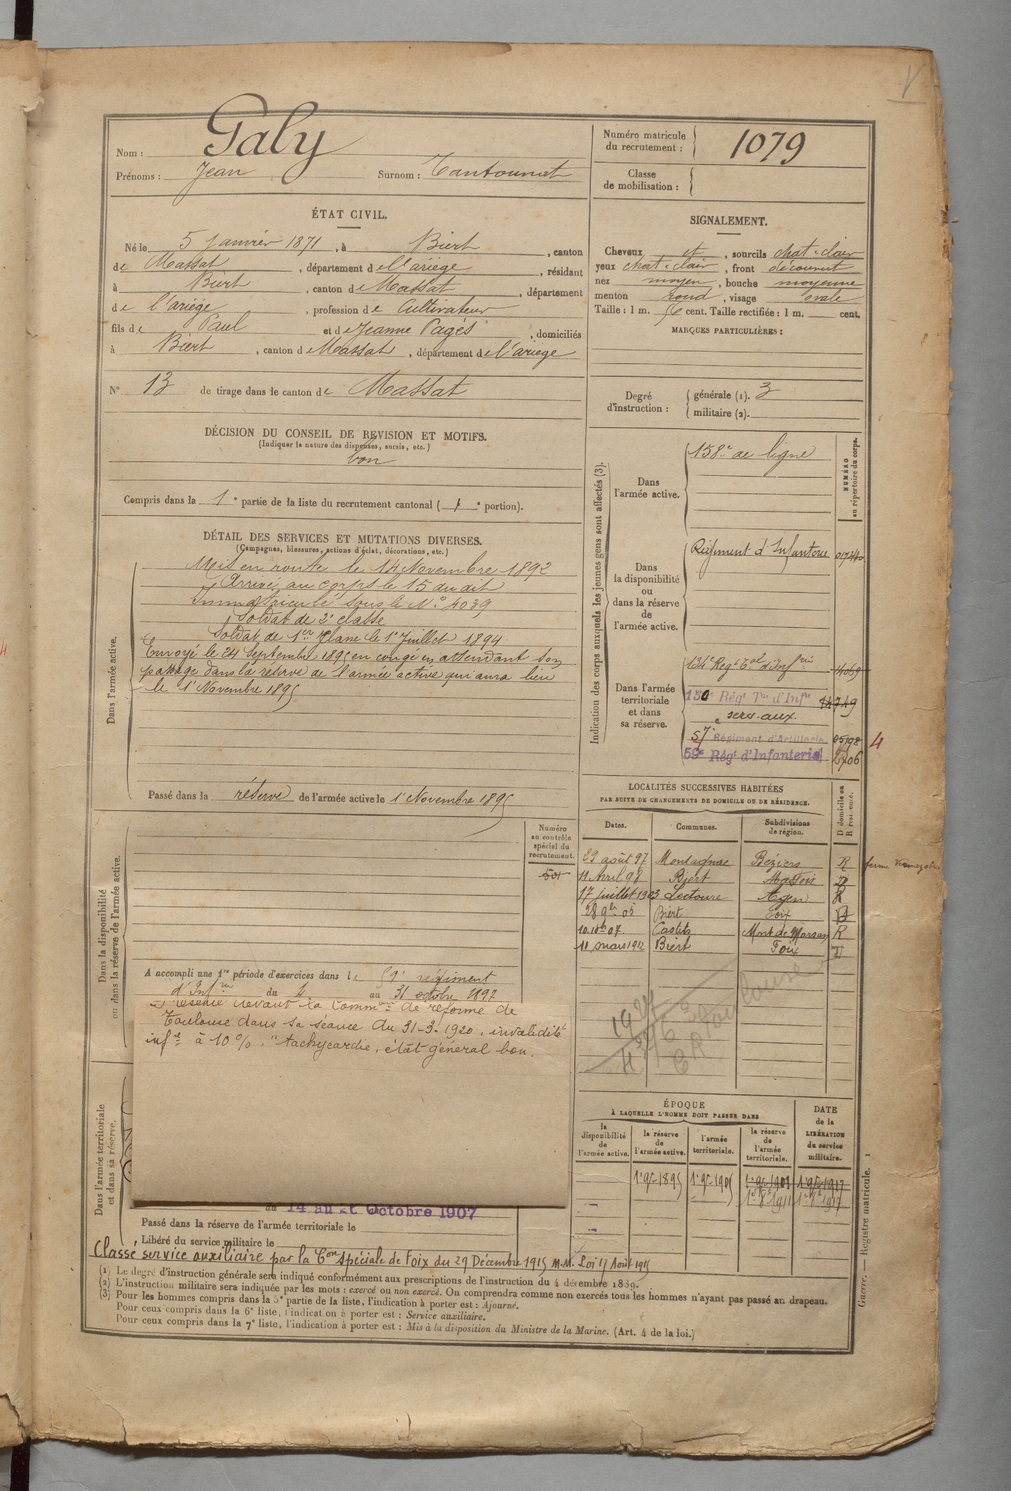 Nom : Galy
Prénoms : Jean Surnom : Tantounat
Numéro matricule du recrutement : 1079
Classe de mobilisation :
ÉTAT CIVIL.
Né le 5 Janvier 1871, à Biert, canton
de Massat, département de l'ariège, résidant
à Biert, canton de Massat, département
de l'ariège, profession de Cultivateur
fils de Paul et de Jeanne Pagès, domiciliés
à Biert, canton de Massat, département de l'ariege
N° 13 de tirage dans le canton de Massat
SIGNALEMENT.
Cheveux et, sourcils chat-clair
yeux chat-clair, front découvert
nez moyen, bouche moyenne
menton rond, visage ovale
Taille : 1 m. cent. Taille rectifiée : 1 m. cent.
MARQUES PARTICULIÈRES :
Degré d'instruction : générale (1). 3
militaire (2).
DÉCISION DU CONSEIL DE REVISION ET MOTIFS.
(Indiquer la nature des dispenses, sursis, etc.)
bon
Compris dans la 1e partie de la liste du recrutement cantonal ( e portion).
DÉTAIL DES SERVICES ET MUTATIONS DIVERSES.
(Campagnes, blessures, actions d'éclat, décorations, etc.)
Dans l'armée active.
Mis en route le 14 Novembre 1892
Arrivé au corps le 15 du dit
Immatriculé sous le N° 4039
Soldat de 2e classe
Soldat de 1re Classe le 1e Juillet 1894
Envoyé le 24 Septembre 1895 en congé en attendant son
passage dans la réserve de l'armée active qui aura lieu
le 1e Novembre 1895
Passé dans la réserve de l'armée active le 1e Novembre 1895
Indication des corps auxquels les jeunes gens sont affectés (3).
NUMÉRO au répertoire du corps.
Dans l'armée active.
158e de ligne
Dans la disponibilité ou dans la réserve de l'armée active.
Régiment d'Infanterie
Dans l'armée territoriale et dans sa réserve.
134e Regt Tal d'Infrie
Régt Tal d'Infie
serv. aux.
57e Régiment d'Artillerie
59e Régt d'Infanterie
4
LOCALITÉS SUCCESSIVES HABITÉES
PAR SUITE DE CHANGEMENTS DE DOMICILE OU DE RÉSIDENCE.
D domicile ou R résidence.
Dates. Communes. Subdivisions de région.
29 août 97 Montagnac Béziers R
11 Avril 98 Biert Foix D
17 Juillet 1903 Lectoure Agen R
28 9bre 05 Biert Foix D
Mont de Marsan R
11 mars 1912 Biert Foix D
Dans la disponibilité ou dans la réserve de l'armée active.
Numéro au contrôle spécial du recrutement.
A accompli une 1re période d'exercices dans le 59e régiment
d'Infrie du 4 au 31 octobre 1897
Présenté devant la Common de réforme de
Toulouse dans sa séance du 31-3-1920, invalidité
infre à 10 %. "tachycardie, état général bon.
Dans l'armée territoriale et dans sa réserve.
Octobre 1907
Passé dans la réserve de l'armée territoriale le
Libéré du service militaire le
Classé service auxiliaire par la Con spéciale de Foix du 29 Décembre 1915 M.M. Loi 17 Août 1915
ÉPOQUE
À LAQUELLE L'HOMME DOIT PASSER DANS
la disponibilité de l'armée active. la réserve de l'armée active. l'armée territoriale. la réserve de l'armée territoriale.
DATE de la LIBÉRATION du service militaire.
(1) Le degré d'instruction générale sera indiqué conformément aux prescriptions de l'instruction du 4 décembre 1889.
(2) L'instruction militaire sera indiquée par les mots : exercé ou non exercé. On comprendra comme non exercés tous les hommes n'ayant pas passé au drapeau.
(3) Pour les hommes compris dans la 5e partie de la liste, l'indication à porter est : Ajourné.
Pour ceux compris dans la 6e liste, l'indication à porter est : Service auxiliaire.
Pour ceux compris dans la 7e liste, l'indication à porter est : Mis à la disposition du Ministre de la Marine. (Art. 4 de la loi.)
Guerre. — Registre matricule. 1